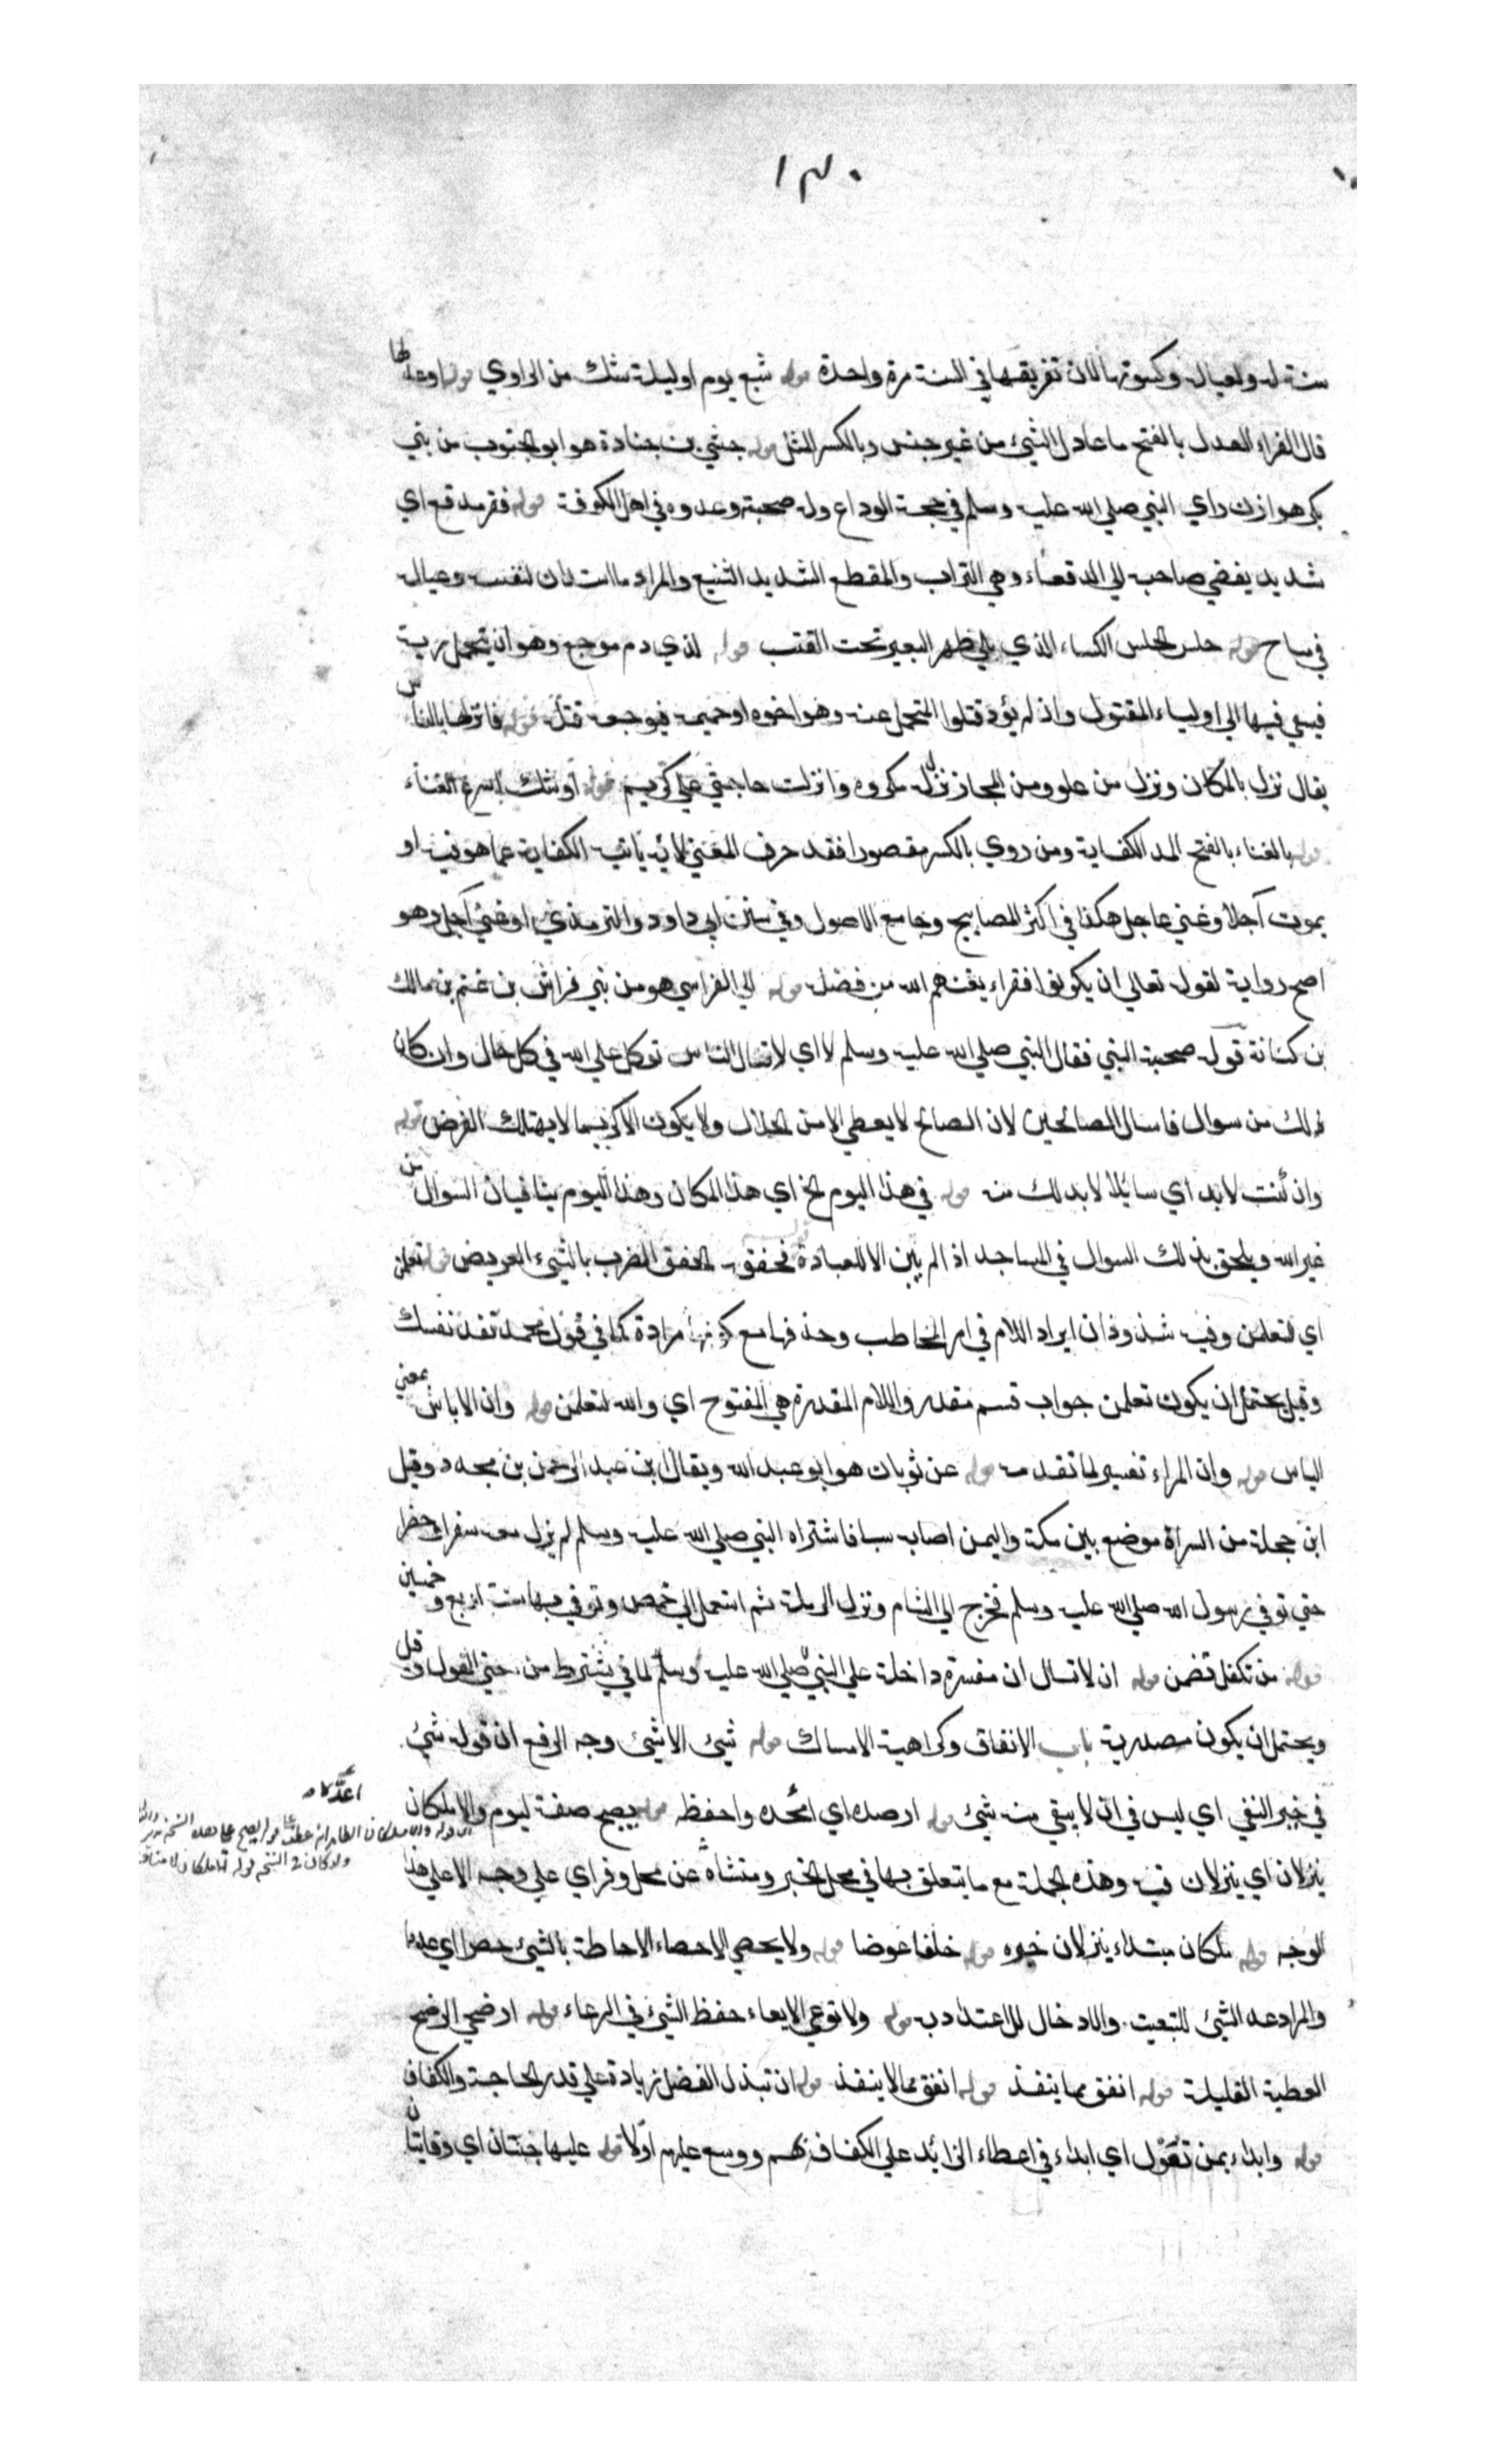 ١٣٠
سنة له ولعياله وكسوتهما لان تفريقها في السنة مرة واحدة قوله شبع يوم او ليلة شك من الراوي قوله او عدلها
قال الفراء العدل بالفتح ما عادل الشيء من غير جنس وبالكسر المثل قوله حبشي بن جنادة هو ابو الجنوب من بني
بكر هوازن راي النبي صلي الله عليه وسلم في حجة الوداع وله صحبة وعدوه في اهل الكوفة قوله فقر مدقع اي
شديد يفضي صاحبه الي الدقعاء وهي التراب والمقطع الشديد الشنيع والمراد ما استدان لنفسه وعياله
في مباح قوله حلس الحلس الكساء الذي يلي ظهر البعير تحت القتب قوله لذي دم موجع وهو ان يتحمل دية
فيسعي فيها الي اولياء المقتول وان لم يؤد قتلوا المتحمل عنه وهو اخوه او حميمه فيوجعه قتله قوله فانزلها بالناس
يقال نزل بالمكان ونزل من علو ومن المجاز نزل مكروه وانزلت حاجتي علي كريم قوله اوشك اسرع الغناء
قوله بالغناء بالفتح المد الكفاية ومن روي بالكسر مقصورا فقد حرف المعني لانه ياتيه الكفاية عما هو فيه او
بموت آجلا وغني عاجل هكذا في اكثر المصابيح وجامع الاصول وفي سنن ابي داود والترمذي او غني آجل وهو
اصح رواية لقوله تعالي ان يكونوا فقراء يغنهم الله من فضله قوله الي الفراسي هو من بني فراس بن غنم بن مالك
بن كنانة قوله صحبة النبي فقال النبي صلي الله عليه وسلم لا اي لا تسال الناس توكل علي الله في كل حال وان كان
ذلك من سوال فاسال الصالحين لان الصالح لا يعطي الا من الحلال ولا يكون الا كريما لا يهتك العرض قوله
وان كنت لا بد اي سائلا لا بد لك منه قوله في هذا اليوم الخ اي هذا المكان وهذا اليوم ينافيان السوال من
غير الله ويلحق بذلك السوال في المساجد اذ لم يبن الا للعبادة قوله فخفقه الخفق الضرب بالشيء العريض قوله تعلمن
اي لتعلمن وفيه شذوذان ايراد اللام في امر المخاطب وحذفها مع كونها مرادة كما في قوله محمد تفد نفسك
وقيل يحتمل ان يكون تعلمن جواب قسم مقدر واللام المقدرة هي المفتوح اي والله لتعلمن قوله وان الاياس بمعني
الياس قوله وان المراء تفسير لما تقدمه قوله عن ثوبان هو ابو عبد الله ويقال ابن عبد الرحمن بن مجدد وقيل
ابن جحدلة من السراة موضع بين مكة واليمن اصابه سبا فاشتراه النبي صلي الله عليه وسلم لم يزل معه سفرا وحضرا
حتي توفي رسول الله صلي الله عليه وسلم فخرج الي الشام ونزل الرملة ثم انتقل الي حمص وتوفي بها سنة اربع وخمسين
قوله من تكفل تضمن قوله ان لا تسال ان مفسرة داخلة علي النبي صلي الله عليه وسلم لما في يشترط من معني القول قيل
ويحتمل ان يكون مصدرية باب الانفاق وكراهية الامساك قوله شيئ الا شيئ وجه الرفع ان قوله شيئ
في خبر النفي اي ليس في ان لا يبقي منه شيئ قوله ارصده اي اعده واحفظه قوله يصبح صفة ليوم والاملكان
ينزلان اي ينزلان فيه وهذه الجملة مع ما يتعلق بها في محل الخبر
الوجه قوله ملكان مبتداء ينزلان خبره قوله خلفا عوضا قوله ولا يحصي الاحصاء الاحاطة بالشيئ حصرا اي عدها
والمراد عد الشيئ للتبعية والادخار للاعتداد به قوله ولا توعي الايعاء حفظ الشيئ في الوعاء قوله ارضخي الرضخ
العطية القليلة قوله انفق مما ينفذ قوله انفق مما لا ينفذ قوله ان تبذل الفضل زيادة علي قدر الحاجة والكفاف
قوله وابداء بمن تعول اي ابداء في اعطاء الزائد علي الكفاف بهم ووسع عليهم اولا قوله عليهما جنتان اي وقايتان